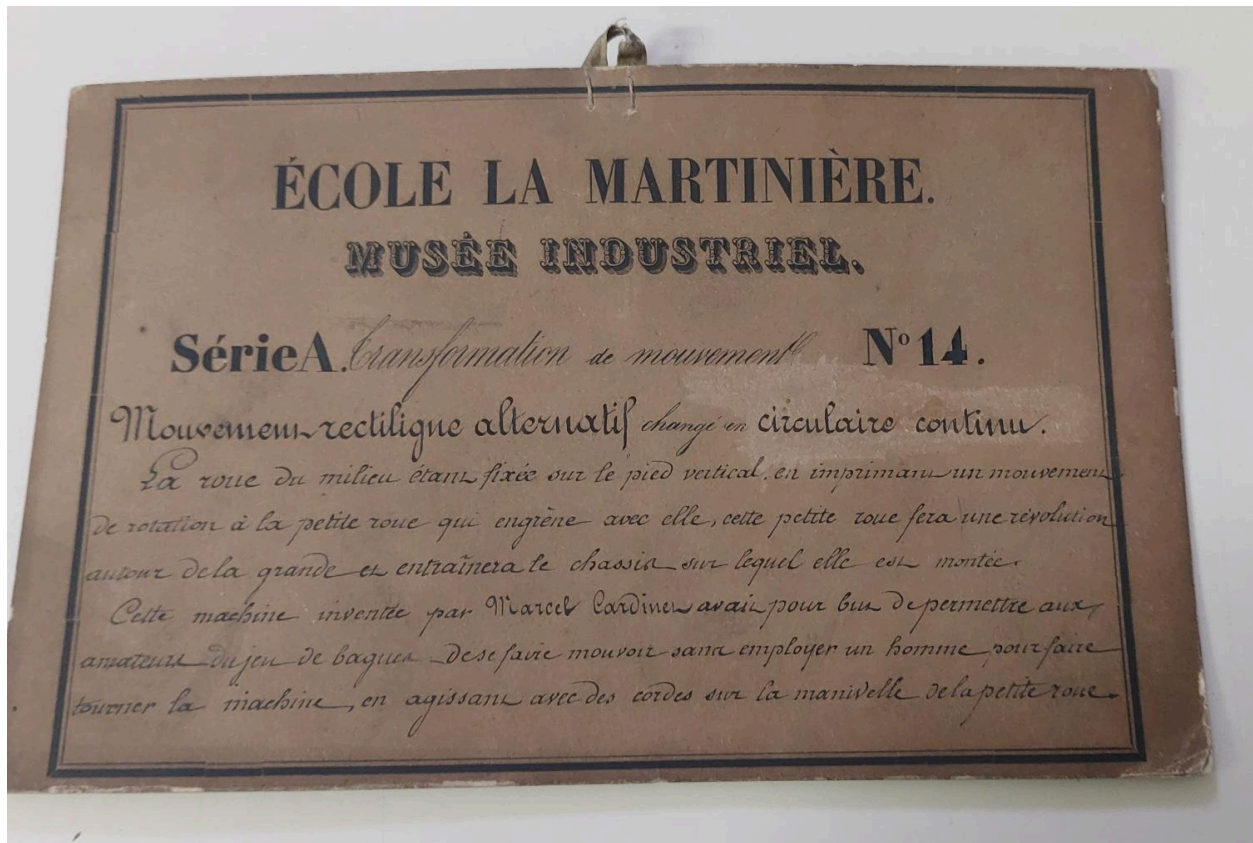 ÉCOLE LA MARTINIÈRE.
MUSÉE INDUSTRIEL.
Série A. Transformation de mouvement Nº 14.
Mouvement rectiligne alternatif changé en circulaire continu.
La roue du milieu étant fixée sur le pied vertical, en imprimant un mouvement
de rotation à la petite roue qui engrène avec elle, cette petite roue fera une révolution
autour de la grande et entraînera le chassis sur lequel elle est montée.
Cette machine inventée par Marcel Cardinet avait pour but de permettre aux
amateurs du jeu de bagues de se faire mouvoir sans employer un homme pour faire
tourner la machine, en agissant avec des cordes sur la manivelle de la petite roue.